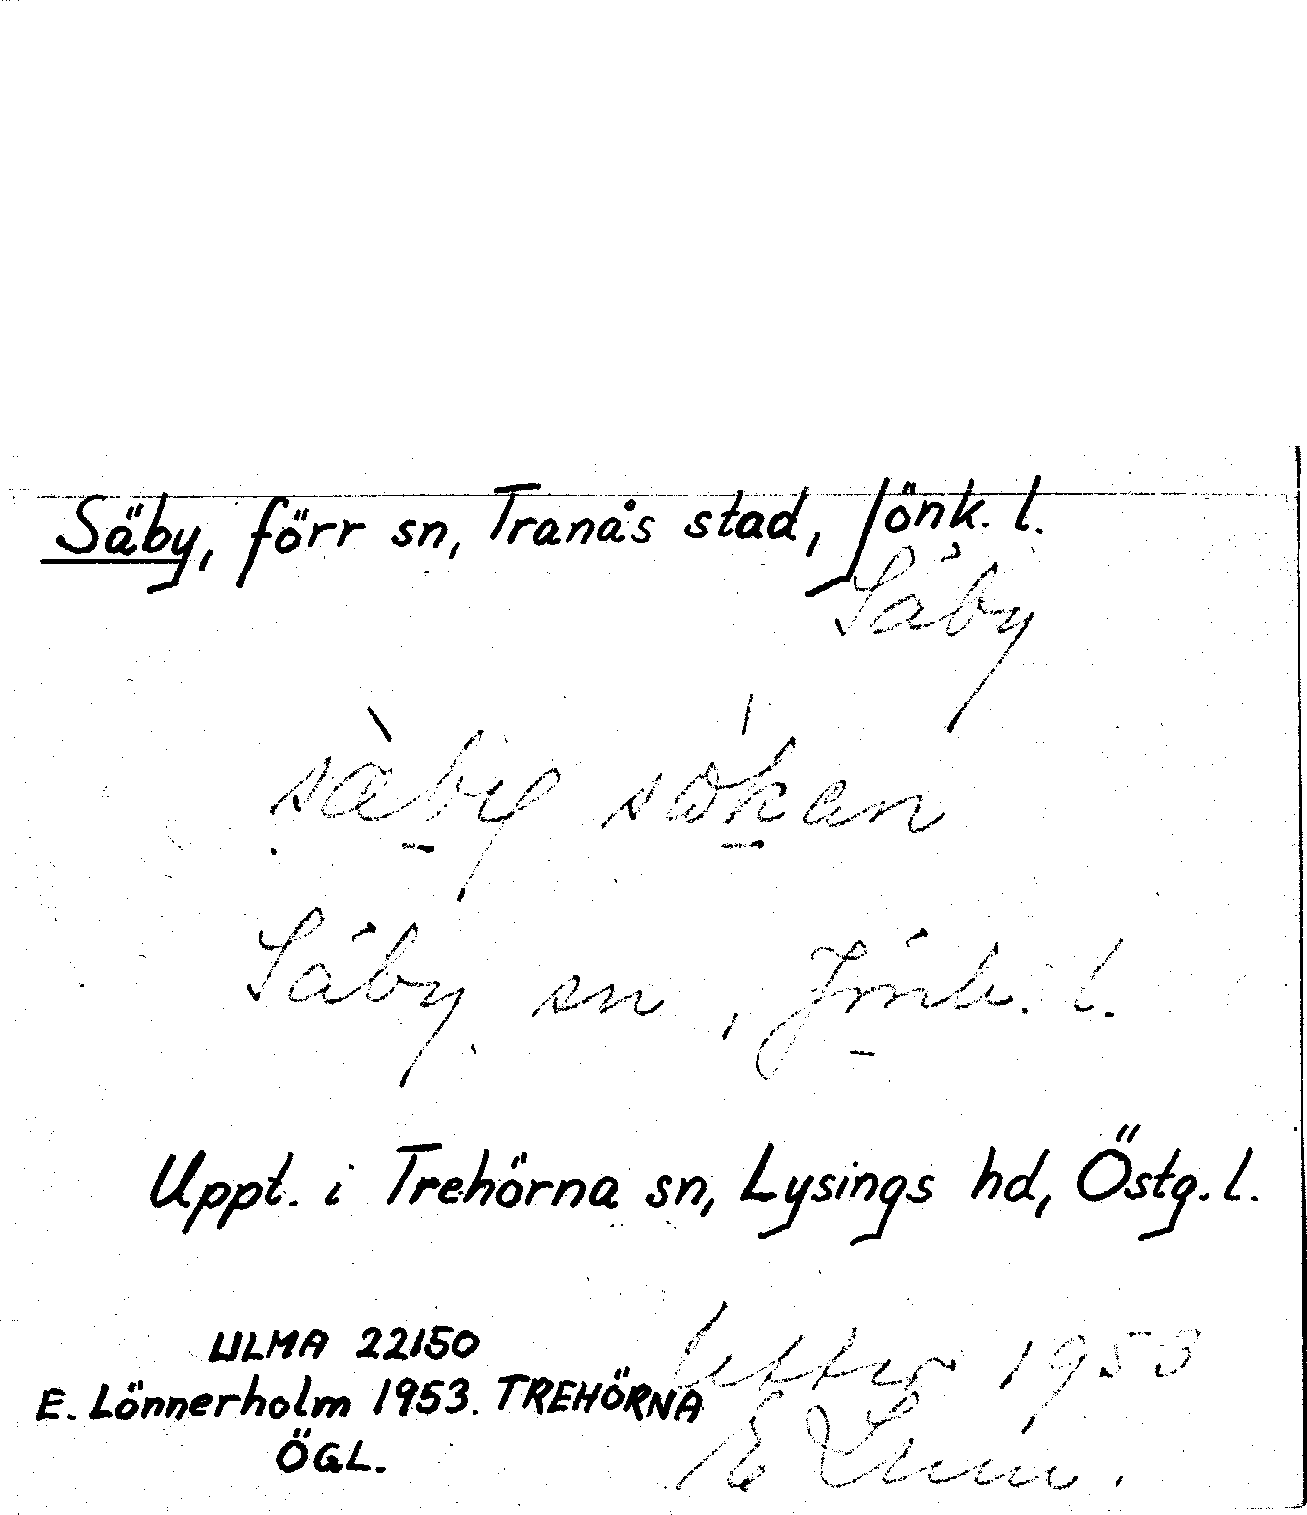 Säby, förr sn, Tranås stad, Jönk. l.
Säby
sàby sökan
Säby sn, Jönk. l.
Uppt. i Trehörna sn, Lysings hd, Östg. l.
ULMA 22150
E. Lönnerholm 1953. TREHÖRNA
ÖGL.
1953
E